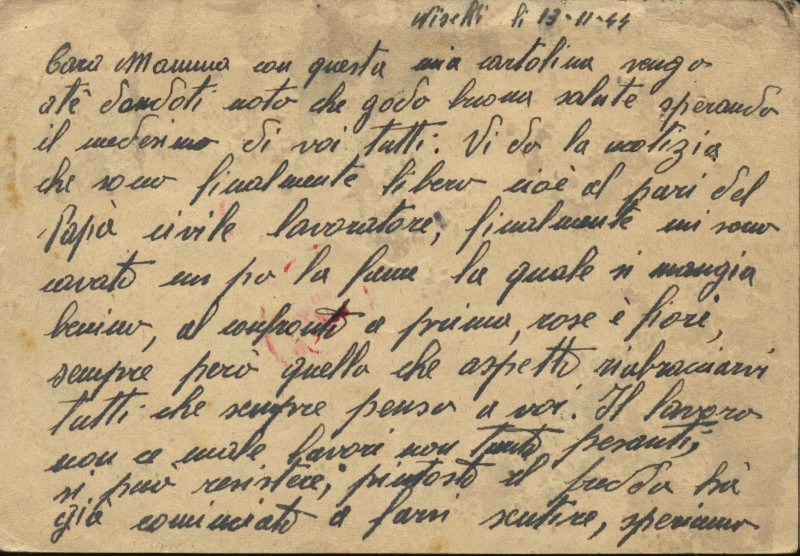 li 13-11-44
Cara Mamma con questa mia cartolina vengo
atè dandoti noto che godo buona salute sperando
il medesimo di voi tutti: Vi do la notizia
che sono finalmente libero cioè al pari del
Papà civile lavoratore, finalmente mi sono
cavato un po la fame la quale si mangia
benino, al confronto a prima, rose è fiori,
sempre però quello che aspetto riabraciarvi
tutti che sempre penso a voi. Il lavoro
non ce male lavori non tanto pesanti,
si può resistere; piutosto il freddo hà
già cominciato a farsi sentire, speriamo